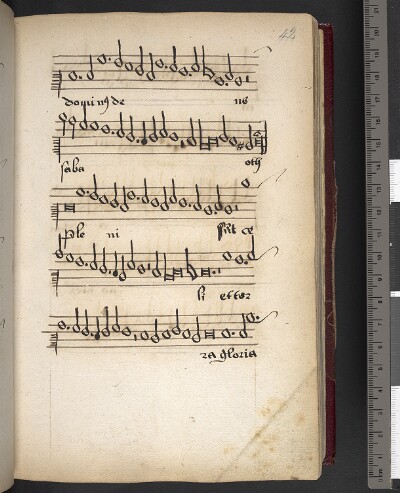 42
dominus de us
saba oth
Ple ni sūt ce
li et ter
ra gloria